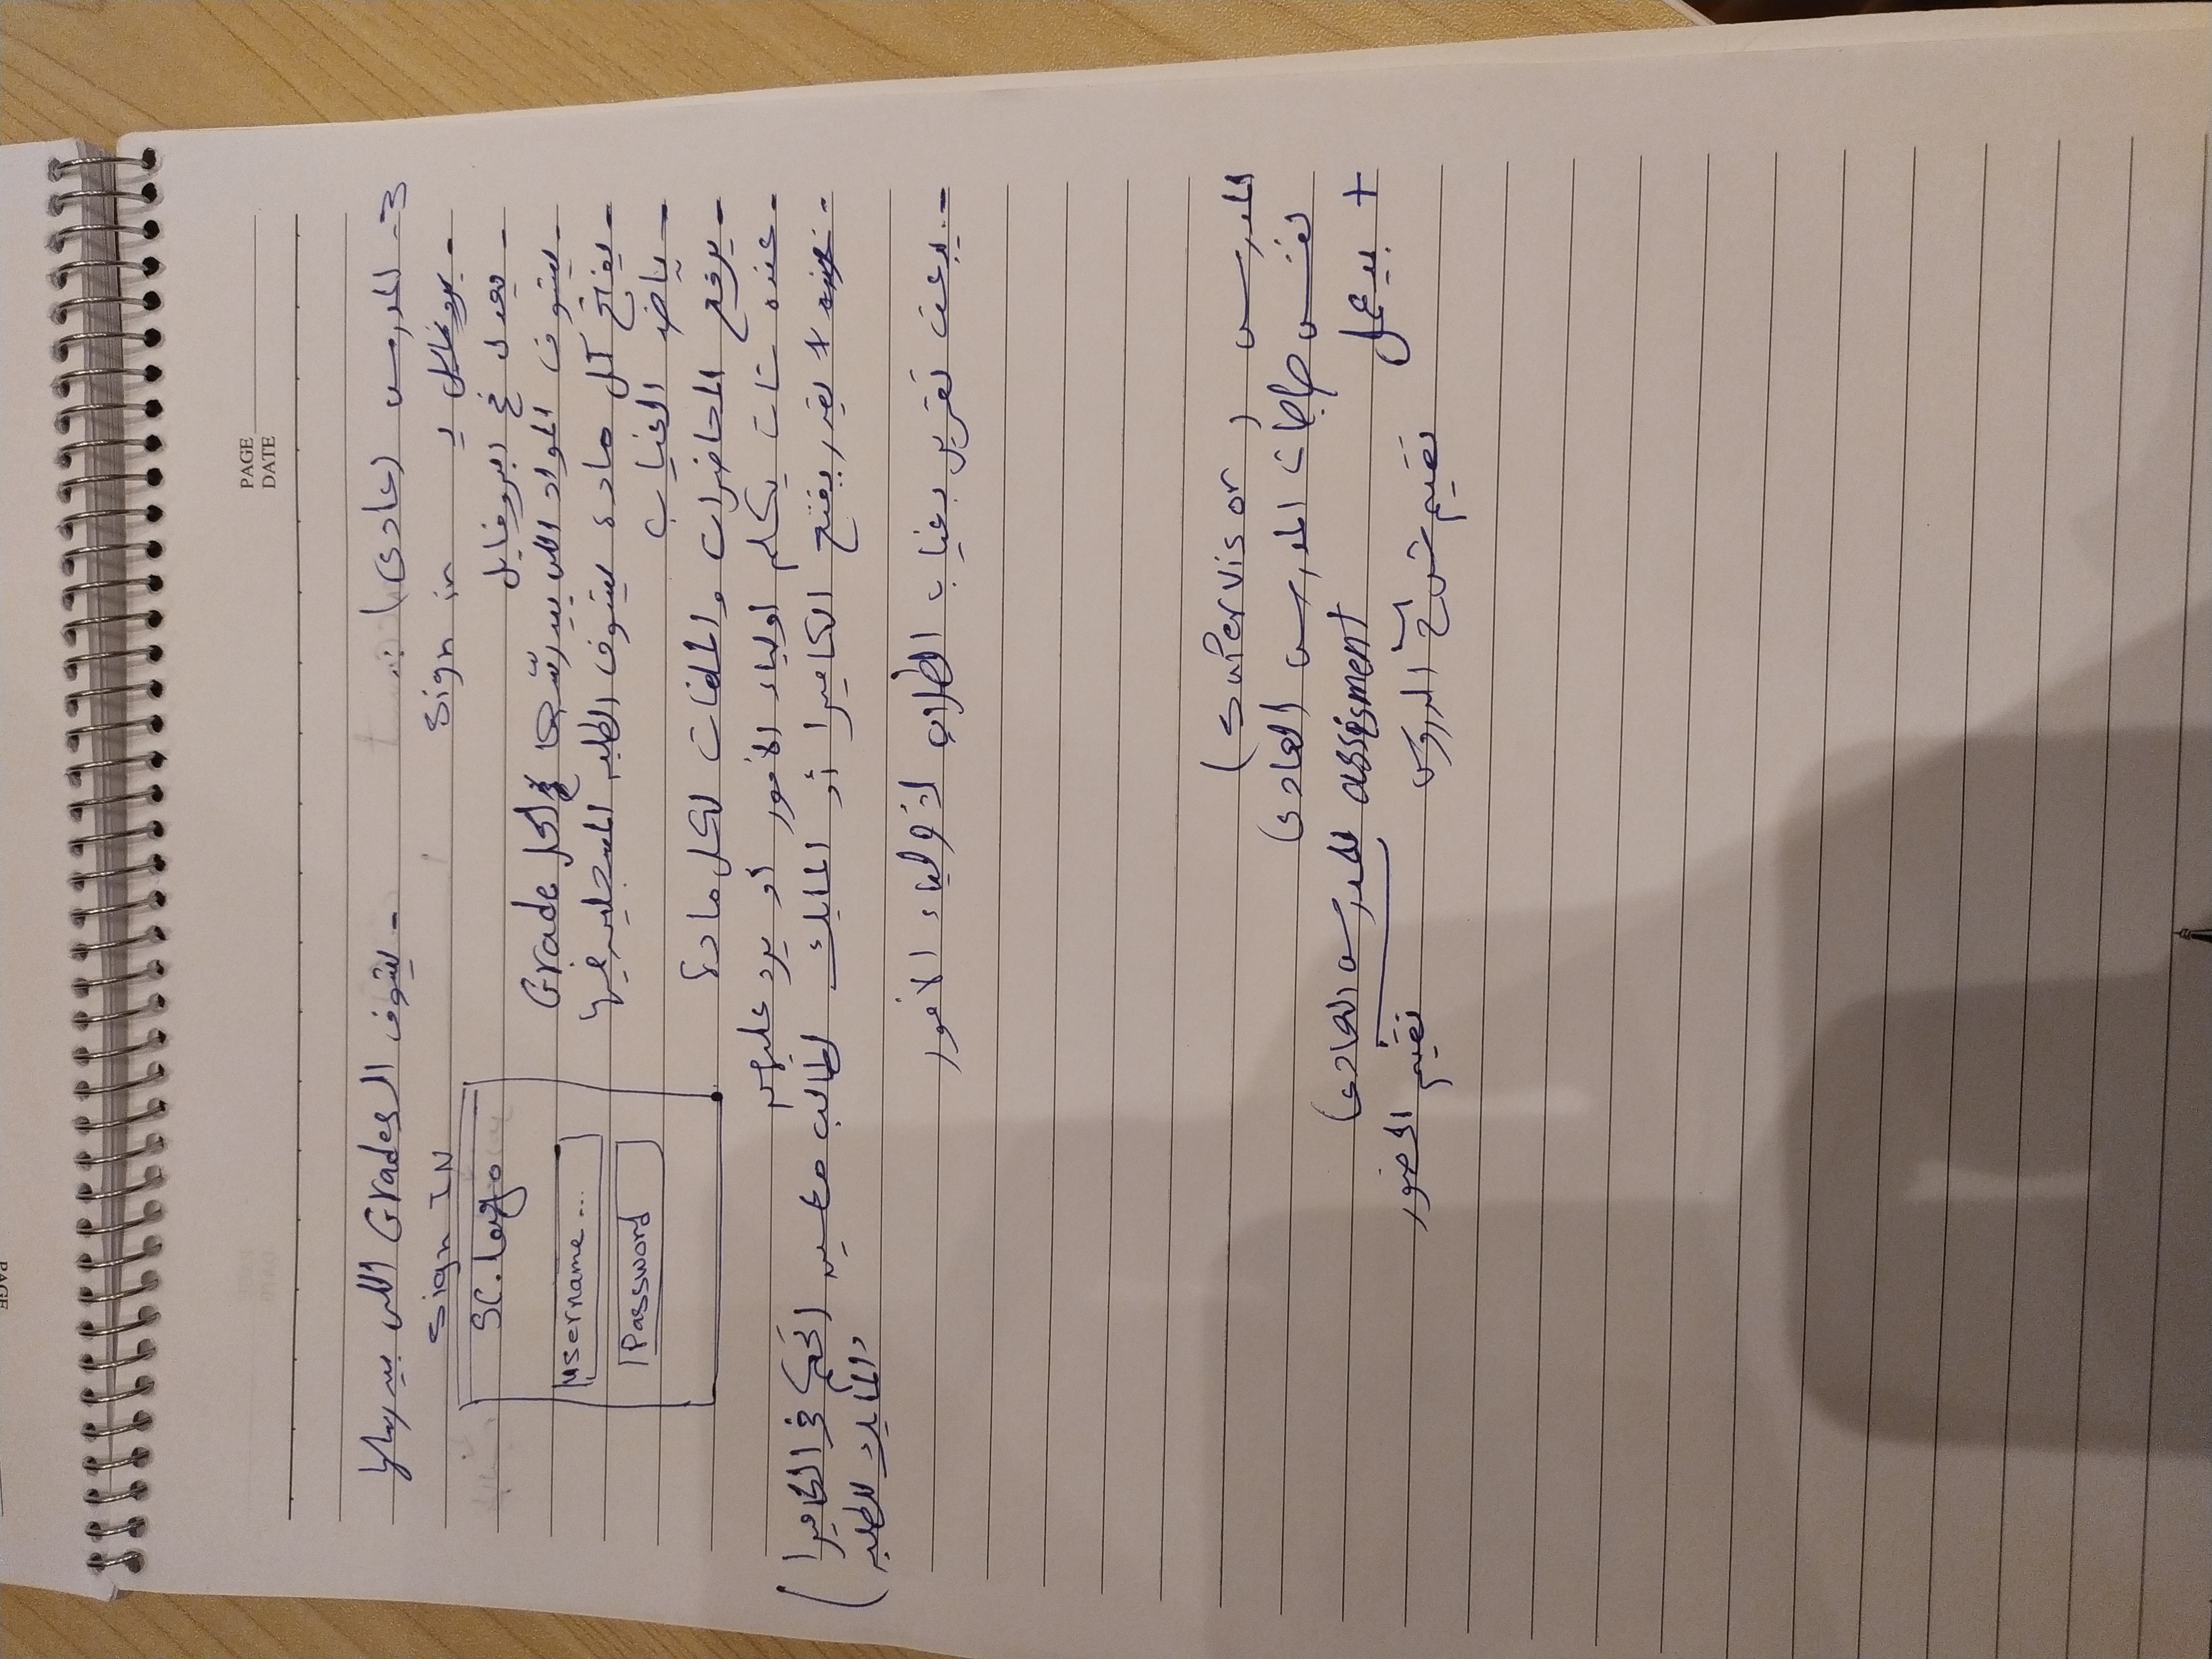 PAGE
PAGE
DATE
3- المدرس (عادى) :
- يشوف الـ Grades اللى بيدرسلها
- بروفايل و Sign in
- يعدل فى البروفايل
- يشوف المواد اللى بيدرّسها لكل Grade
- يفتح كل مادة يشوف الطلبه المسجلين فيها
- ياخد الغياب
- يرفع المحاضرات والملفات لكل مادة
- عنده شات يكلم اولياء الأمور أو يرد عليهم
- عنده يقدر يفتح الكاميرا أو المايك لطالب معين (تحكم فى الكاميرا
والمايك للطلبه)
- يبعت تقرير بغياب الطلاب لأولياء الأمور
Sign IN
SC. Logo
username ...
Password
المدرس (Supervisor)
نفس حاجات المدرس العادى
+ بيعمل assisment للمدرس العادى
تقيم شرح الدروس
تقيم الحضور